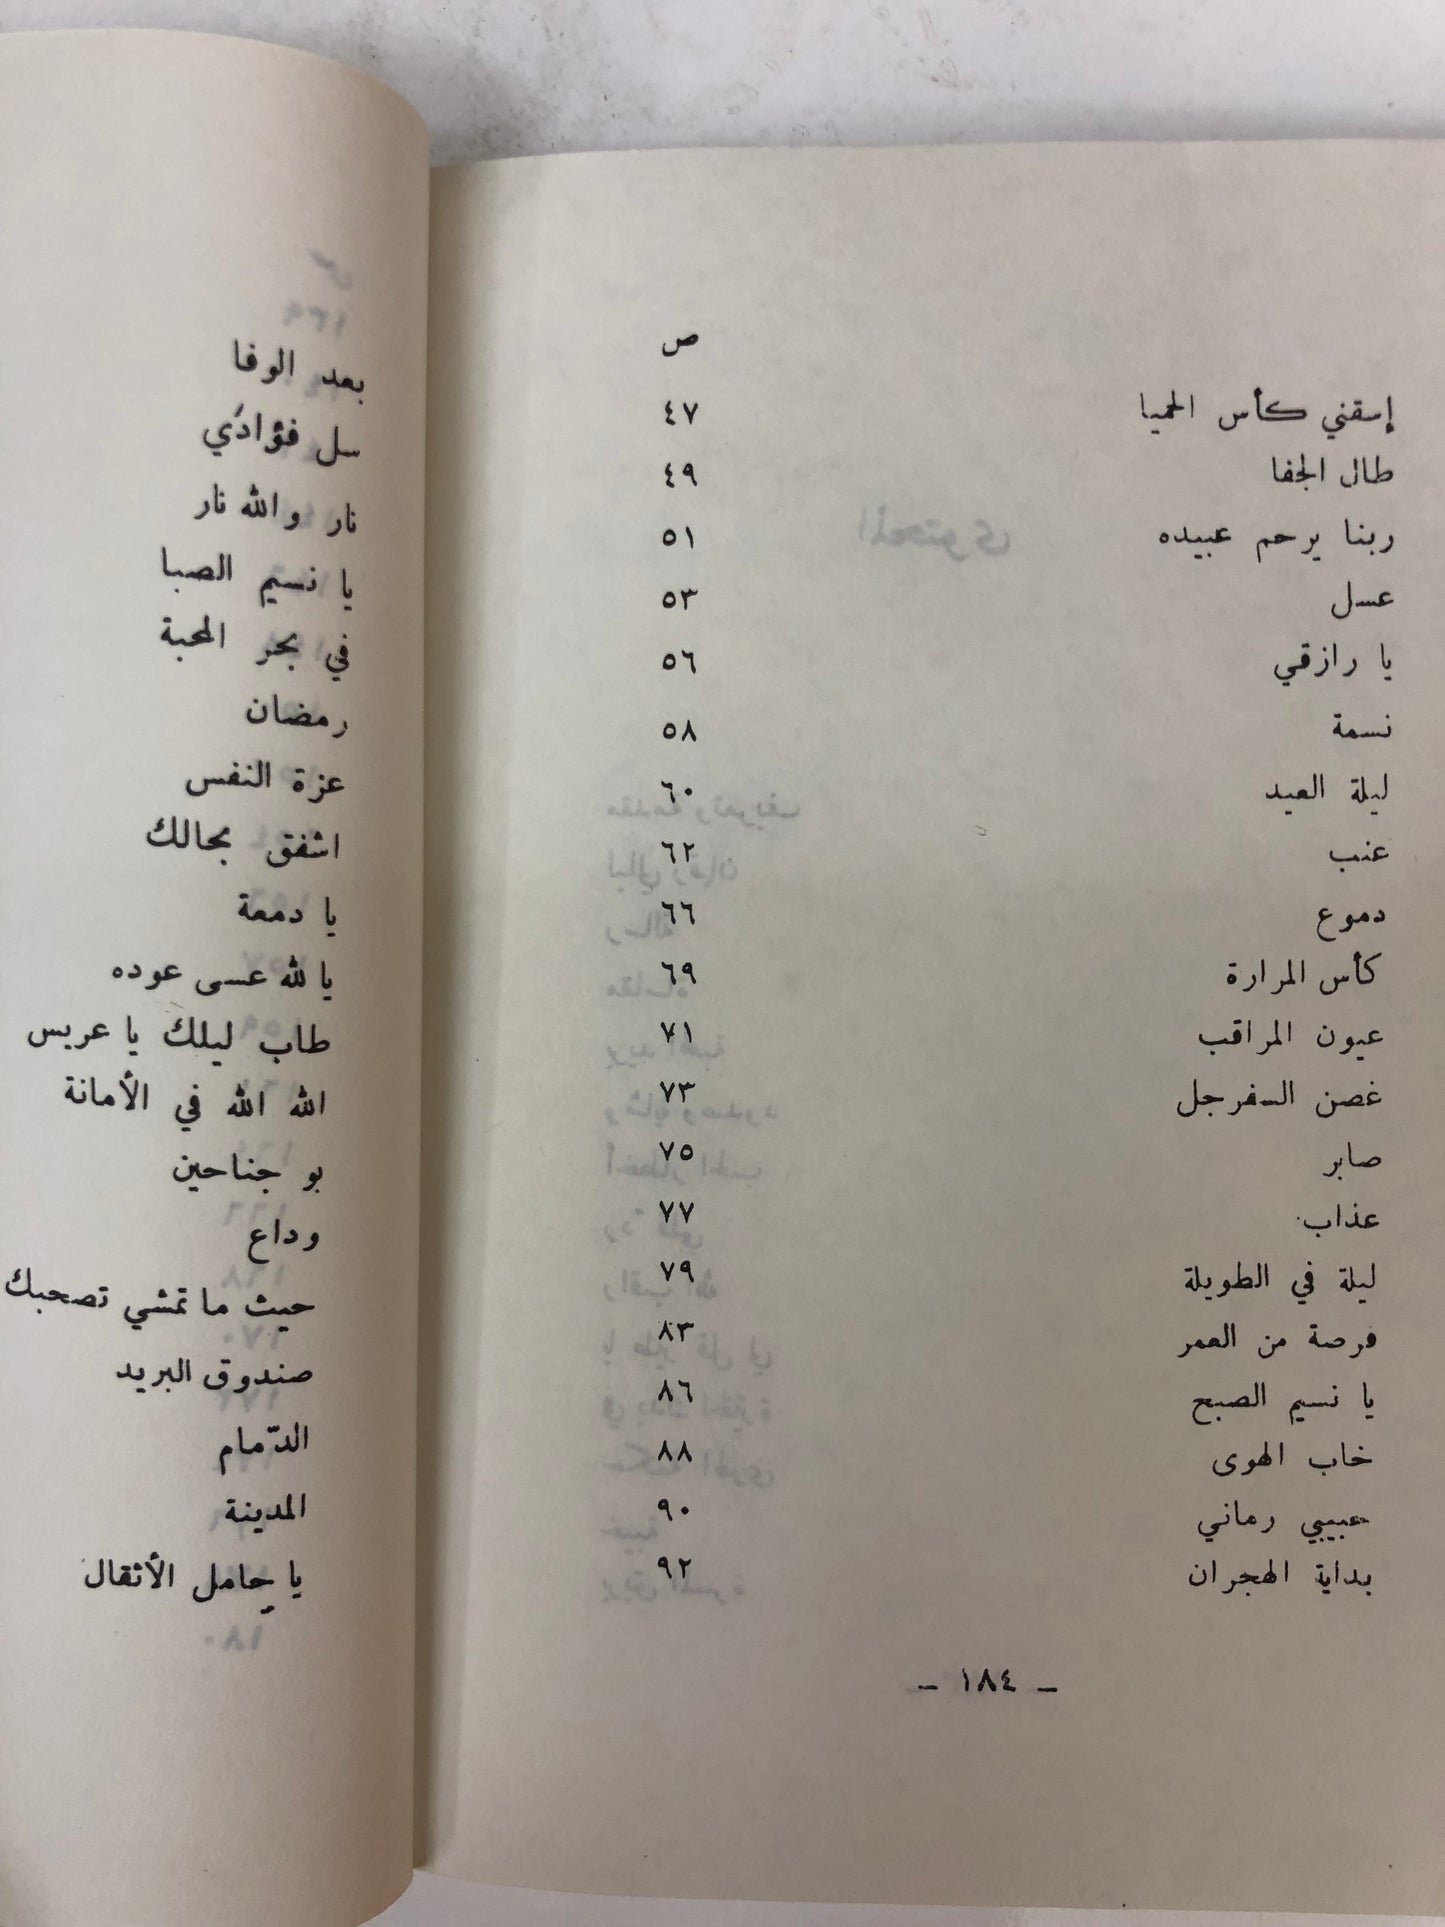 ص
إسقني كأس الحميا ٤٧
طال الجفا ٤٩
ربنا يرحم عبيده ٥١
عسل ٥٣
يا رازقي ٥٦
نسمة ٥٨
ليلة العيد ٦٠
عنب ٦٢
دموع ٦٦
كأس المرارة ٦٩
عيون المراقب ٧١
غصن السفرجل ٧٣
صابر ٧٥
عذاب ٧٧
ليلة في الطويلة ٧٩
فرصة من العمر ٨٣
يا نسيم الصبح ٨٦
خاب الهوى ٨٨
حبيبي رماني ٩٠
بداية الهجران ٩٢
– ١٨٤ –
بعد الوفا
سل فؤادي
نار والله نار
يا نسيم الصبا
في بحر المحبة
رمضان
عزة النفس
اشفق بحالك
يا دمعة
يا لله عسى عوده
طاب ليلك يا عريس
الله الله في الأمانة
بو جناحين
وداع
حيث ما تمشي تصحبك
صندوق البريد
الدّمام
المدينة
يا حامل الأثقال